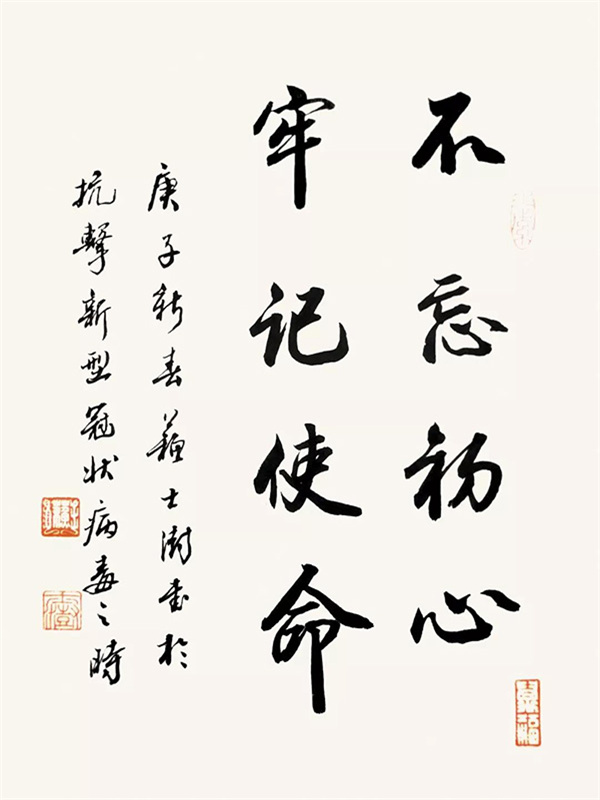 不忘初心
牢记使命
庚子新春蘇士澍書於
抗擊新型冠状病毒之時